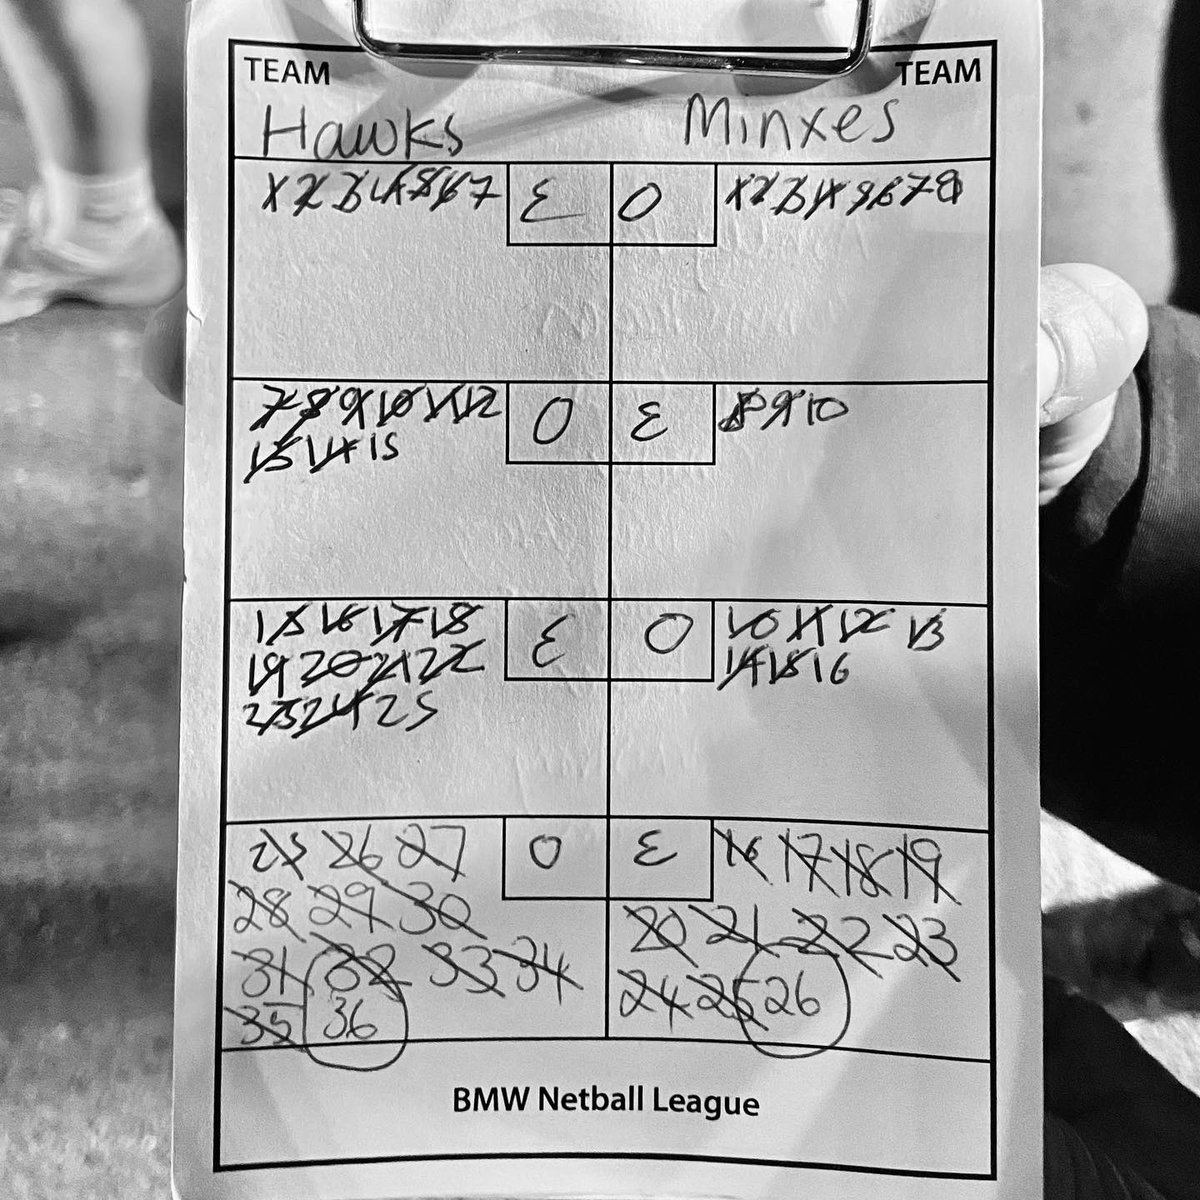 TEAM TEAM
Hawks Minxes
1 2 3 4 5 6 7 E O 1 2 3 4 5 6 7 8
7 8 9 10 11 12 O E 8 9 10
13 14 15
15 16 17 18 E O 10 11 12 13
19 20 21 22 14 15 16
23 24 25
25 26 27 O E 16 17 18 19
28 29 30 20 21 22 23
31 32 33 34 24 25 26
35 36
BMW Netball League